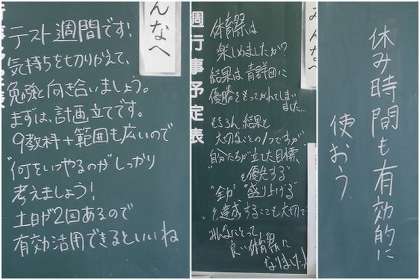 んなへ
テスト週間です!
気持ちを切りかえて、
勉強と向き合いましょう。
まずは、計画立てです。
9教科+範囲も広いので
"何をいつやるのか"しっかり
考えましょう!
土日が2回あるので
有効活用できるといいね
週行事予定表
みんなへ
体育祭は
楽しめましたか?
結果は青群団に
優勝をもってかれてしまいました…
もちろん結果も
大切なことの1つですが
自分たちが立てた目標
"優先する"
"全力" "盛り上げる"
を達成することも大切です
みんなにとって
良い体育祭に
休み時間も有効的に
使おう